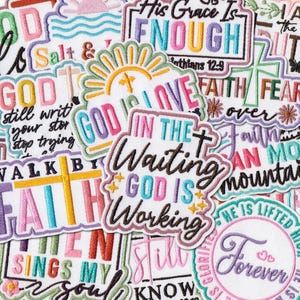 His Grace Is
ENOUGH
Corinthians 12:9
Salt &
GOD
still writ
your stor
stop trying
GOD IS LOVE
FAITH
FEAR
over
Faith
AN MO
mountain
IN THE
Waiting
GOD IS
Working
WALK BY
FAITH
HEN
SINGS MY
Soul
still
KNOW
HE IS LIFTED HI
GLORIFI
Forever